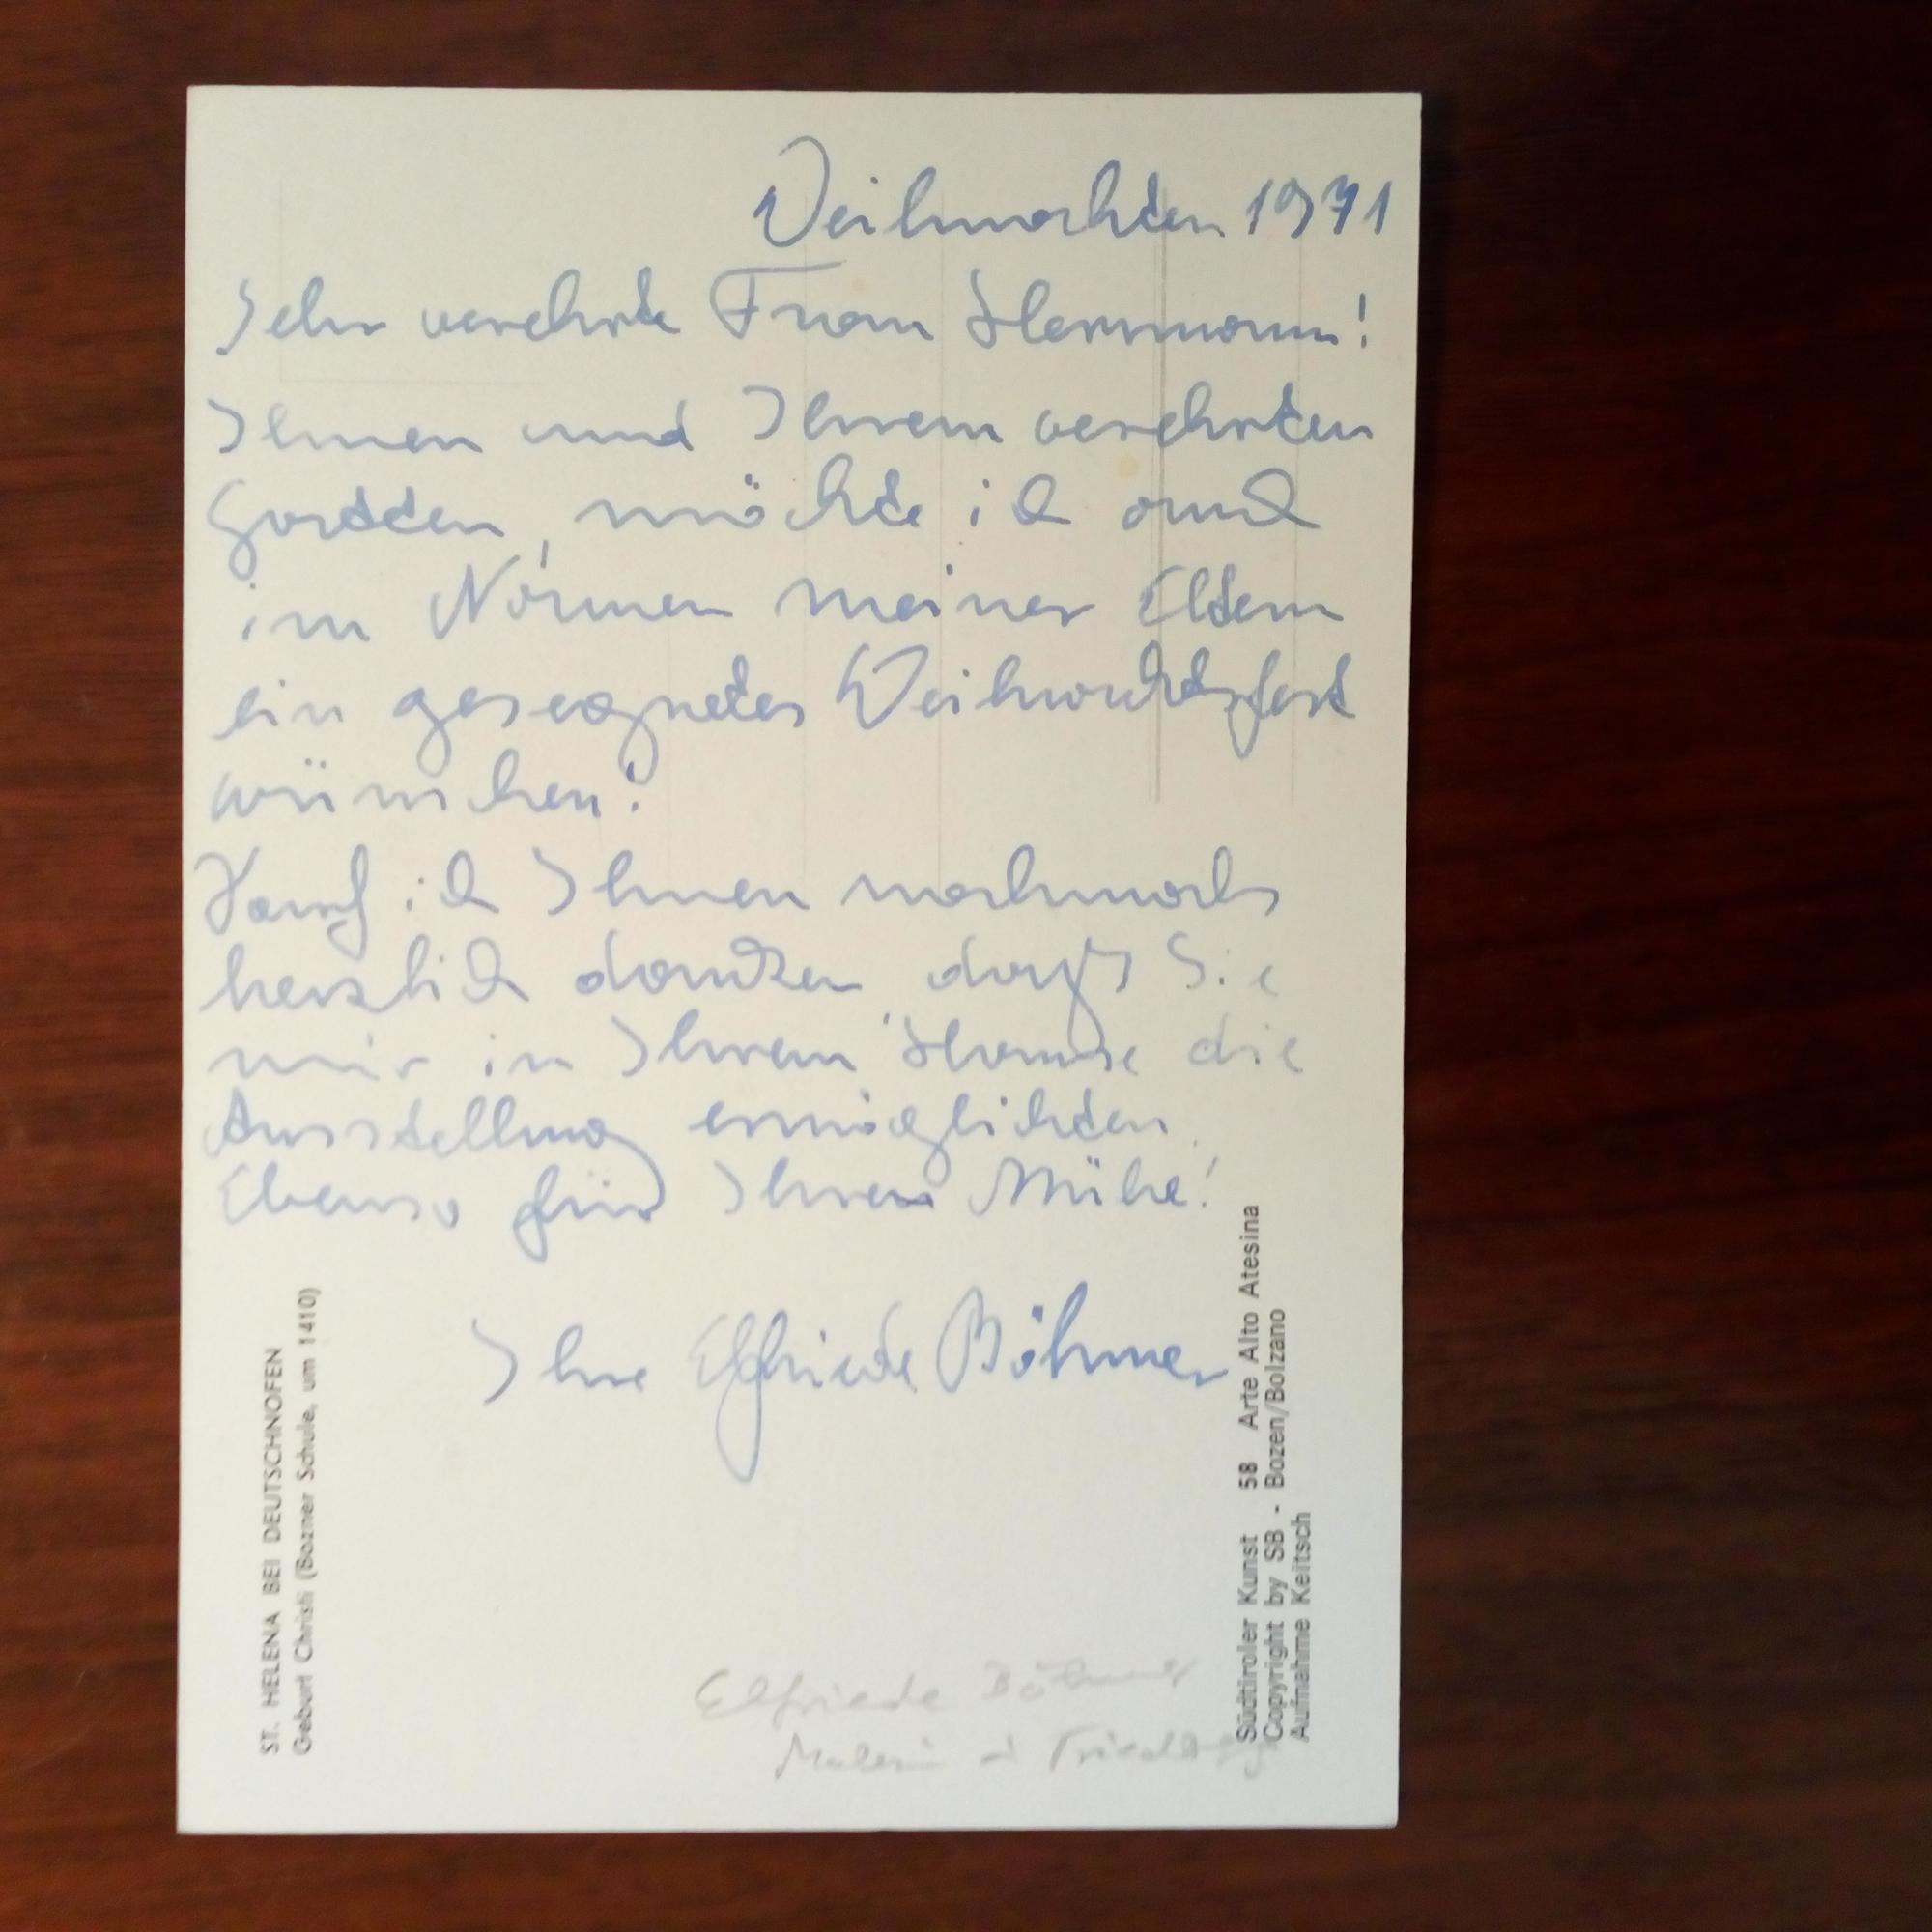 Weihnachten 1971
Sehr verehrte Frau Herrmann!
Ihnen und Ihrem verehrten
Gatten, möchte ich auch
im Namen meiner Eltern
ein gesegnetes Weihnachtsfest
wünschen!
Darf ich Ihnen nochmals
herzlich danken, dass Sie
mir in Ihrem Hause die
Ausstellung ermöglichten.
Ebenso für Ihre Mühe!
Ihre Elfriede Böhmer
ST. HELENA BEI DEUTSCHNOFEN
Geburt Christi (Bozner Schule, um 1410)
Südtiroler Kunst 58 Arte Alto Atesina
Copyright by SB - Bozen/Bolzano
Aufnahme Keitsch
Elfriede Böhmer
Malerin